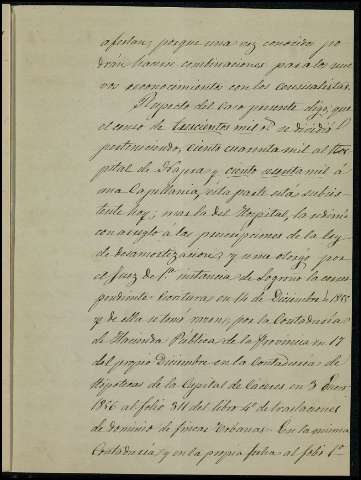 afectan; porque una vez conocidos po
drán hacerse combinaciones para los nue
vos reconocimientos con los censualistas.
Respecto del Caso presente digo; que
el censo de trescientos mil rs se dividió
perteneciendo, ciento cuarenta mil al Hos
pital de Nagera y ciento sesenta mil á
una Capellania, esta parte está subsis
tente hoy; mas la del Hospital, la redimí
con arreglo á las prescripciones de la ley
de desamortizacion, y me otorgó por
el Juez de 1ª instancia de Logroño la corres
pondiente Escritura en 14 de Diciembre 1855
y de ella se tomó razon, por la Contaduría
de Hacienda Pública de la Provincia en 17
del propio Diciembre en la Contaduria de
Hipotecas de la Capital de Cáceres en 3 Enero
1856 al folio 311 del libro 4º de traslaciones
de dominio de fincas Urbanas. En la misma
Contaduría, y en la propia fecha al folio 1º